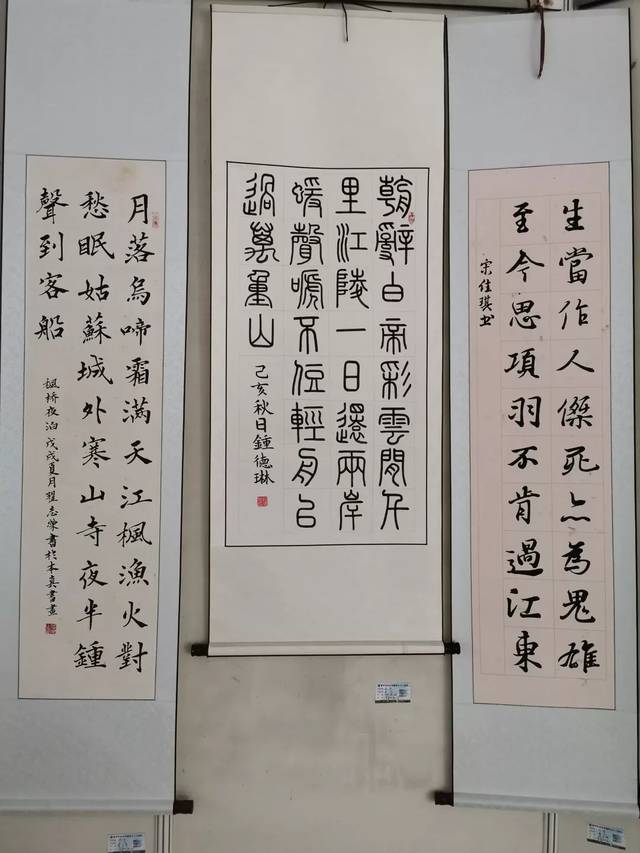 生當作人傑死亦為鬼雄
至今思項羽不肯過江東
宋佳琪书
朝辭白帝彩雲間千
里江陵一日還兩岸
猨聲嗁不住輕舟已
過萬重山
己亥秋日鍾德琳
月落烏啼霜滿天江楓漁火對
愁眠姑蘇城外寒山寺夜半鍾
聲到客船
楓橋夜泊戊戌夏月志榮書於本真書畫